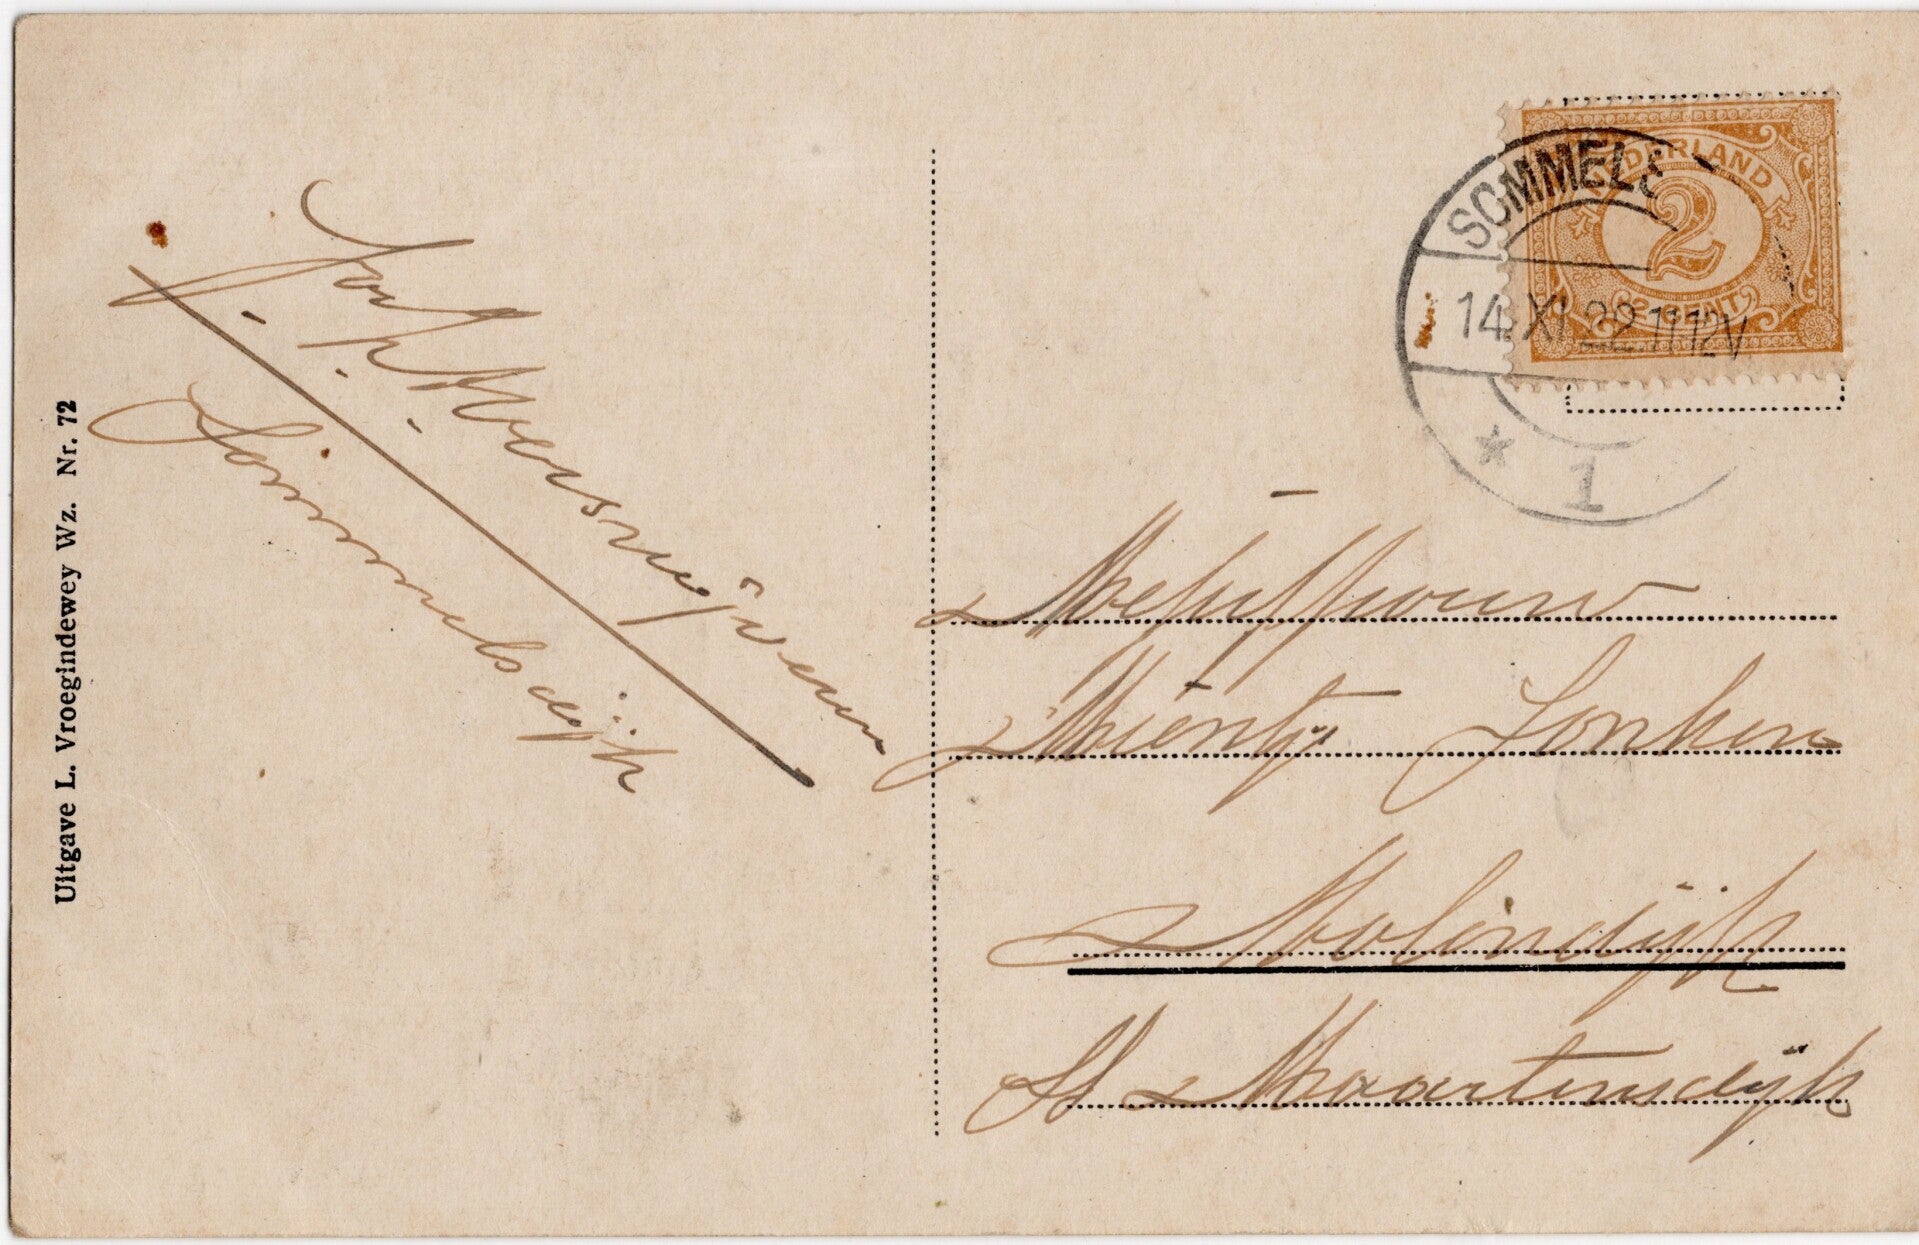 Uitgave L. Vroegindewey Wz. Nr. 72
Sommelsdijk
NEDERLAND
2
2 CENT
SOMMELS
14 XI 22 11-12V
* 1
Mejuffrouw
Mientje Lonken
Molendijk
St Maartensdijk